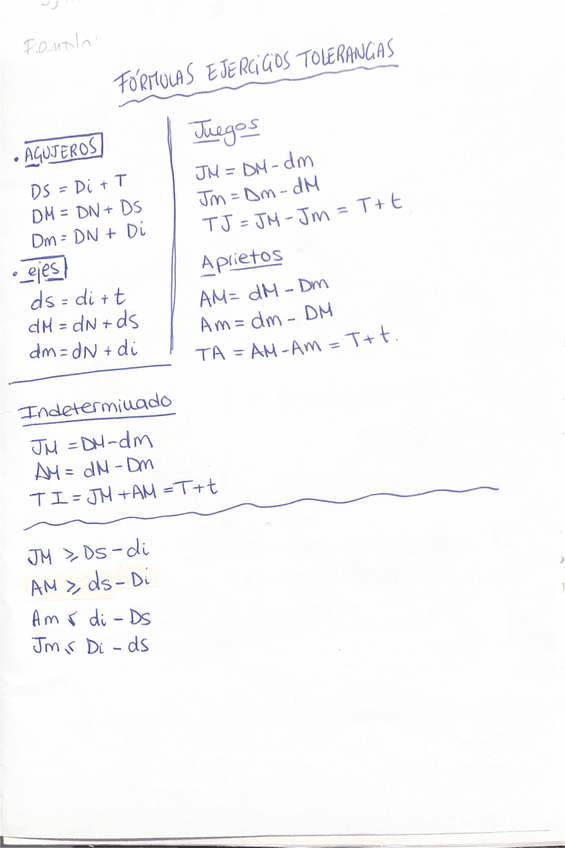 FÓRMULAS EJERCICIOS TOLERANCIAS
• AGUJEROS
DS = Di + T
DM = DN + DS
Dm = DN + Di
• ejes
ds = di + t
dM = dN + ds
dm = dN + di
Juegos
JM = DM - dm
Jm = Dm - dM
TJ = JM - Jm = T + t
Aprietos
AM = dM - Dm
Am = dm - DM
TA = AM - Am = T + t.
Indeterminado
JM = DM - dm
AM = dM - Dm
TI = JM + AM = T + t
JM ⩾ Ds - di
AM ⩾ ds - Di
Am ⩽ di - Ds
Jm ⩽ Di - ds